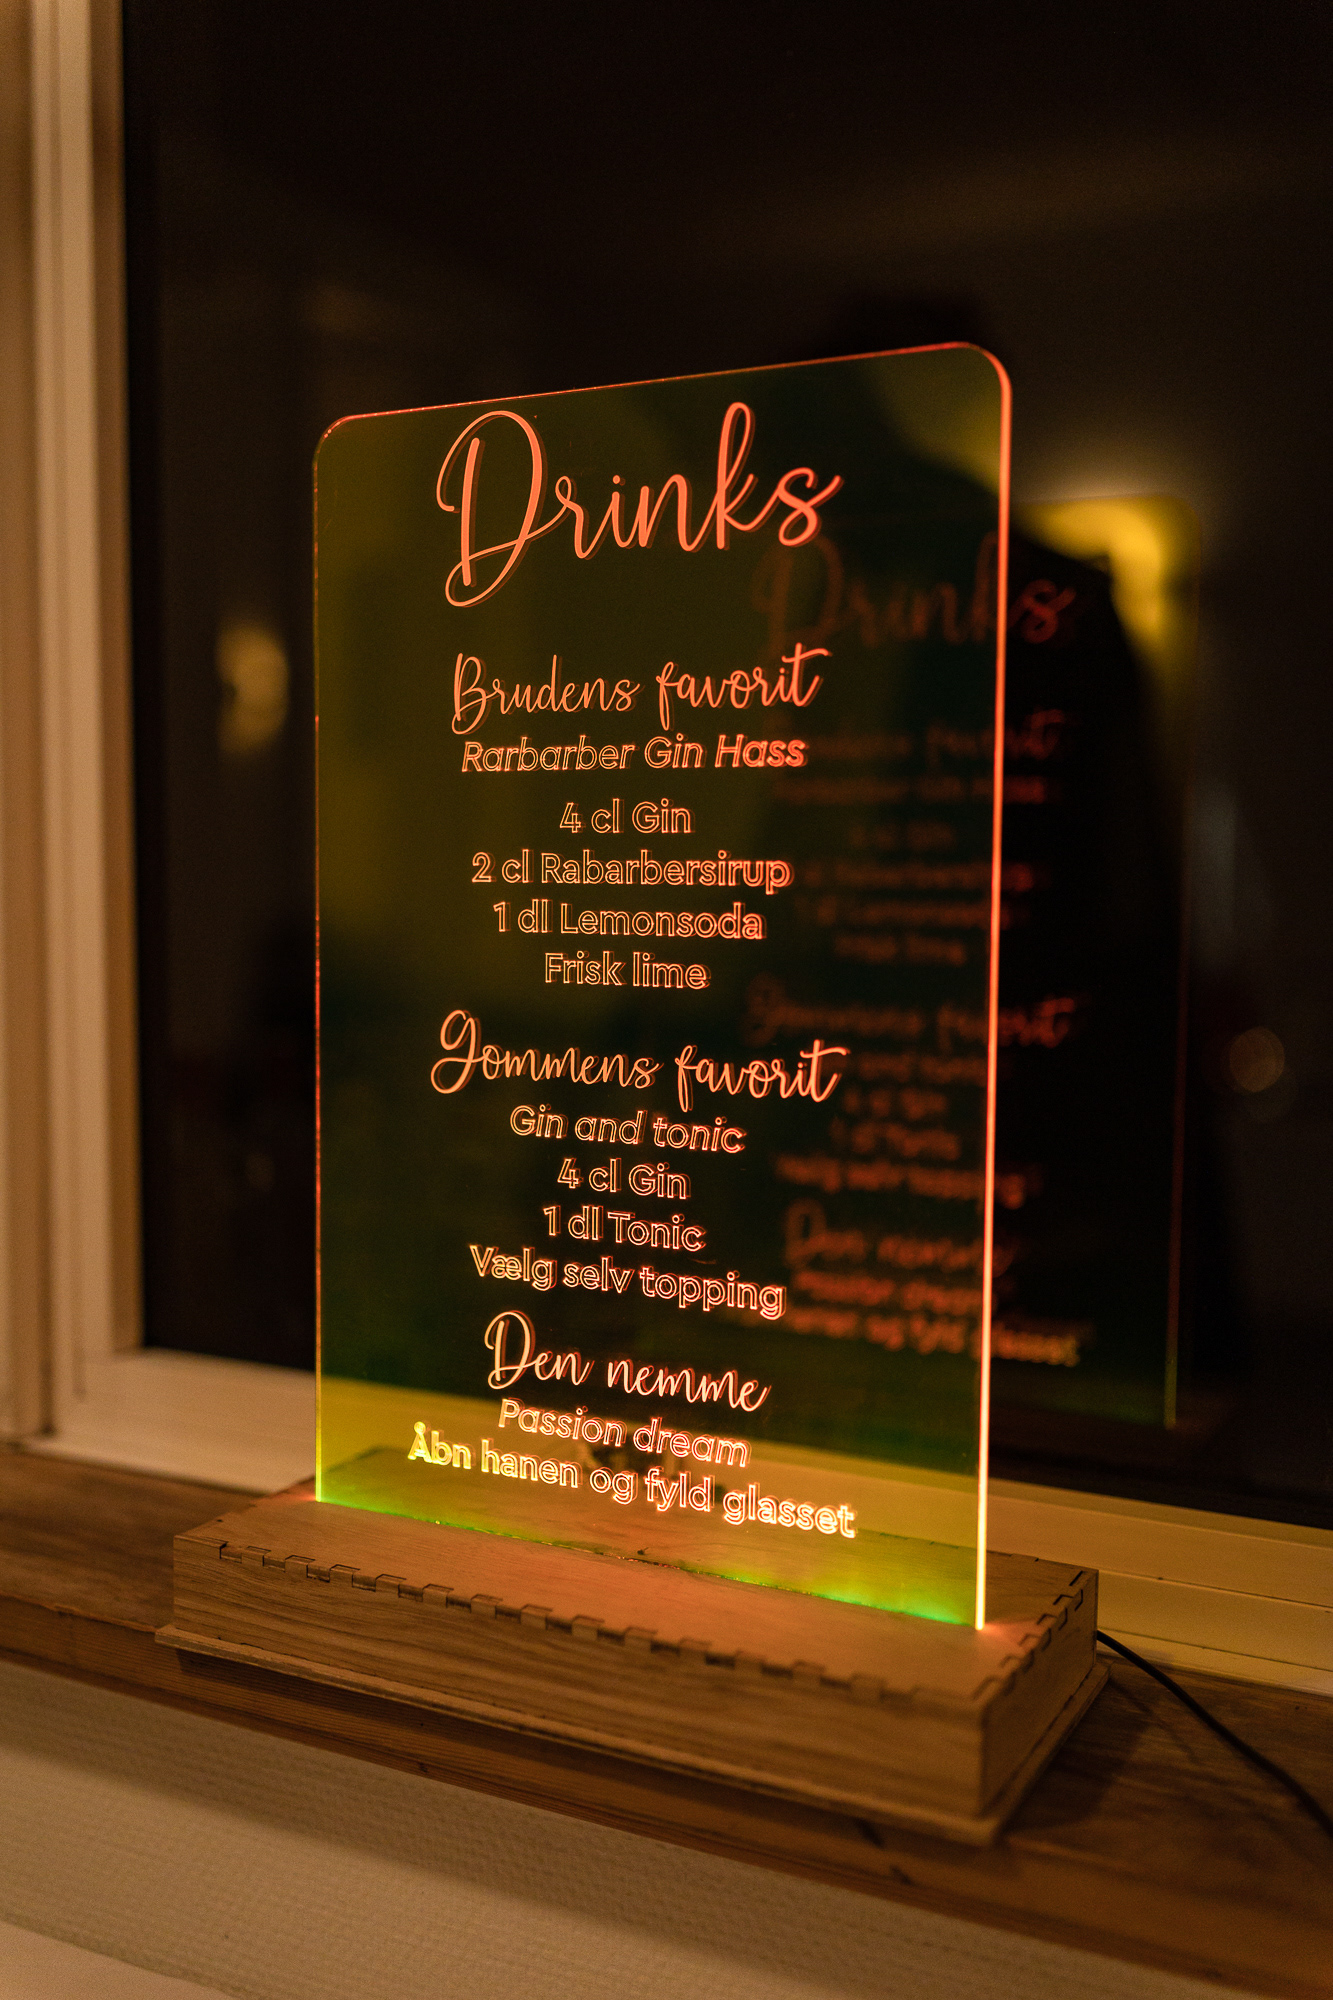 Drinks
Brudens favorit
Rarbarber Gin Hass
4 cl Gin
2 cl Rabarbersirup
1 dl Lemonsoda
Frisk lime
Gommens favorit
Gin and tonic
4 cl Gin
1 dl Tonic
Vælg selv topping
Den nemme
Passion dream
Åbn hanen og fyld glasset